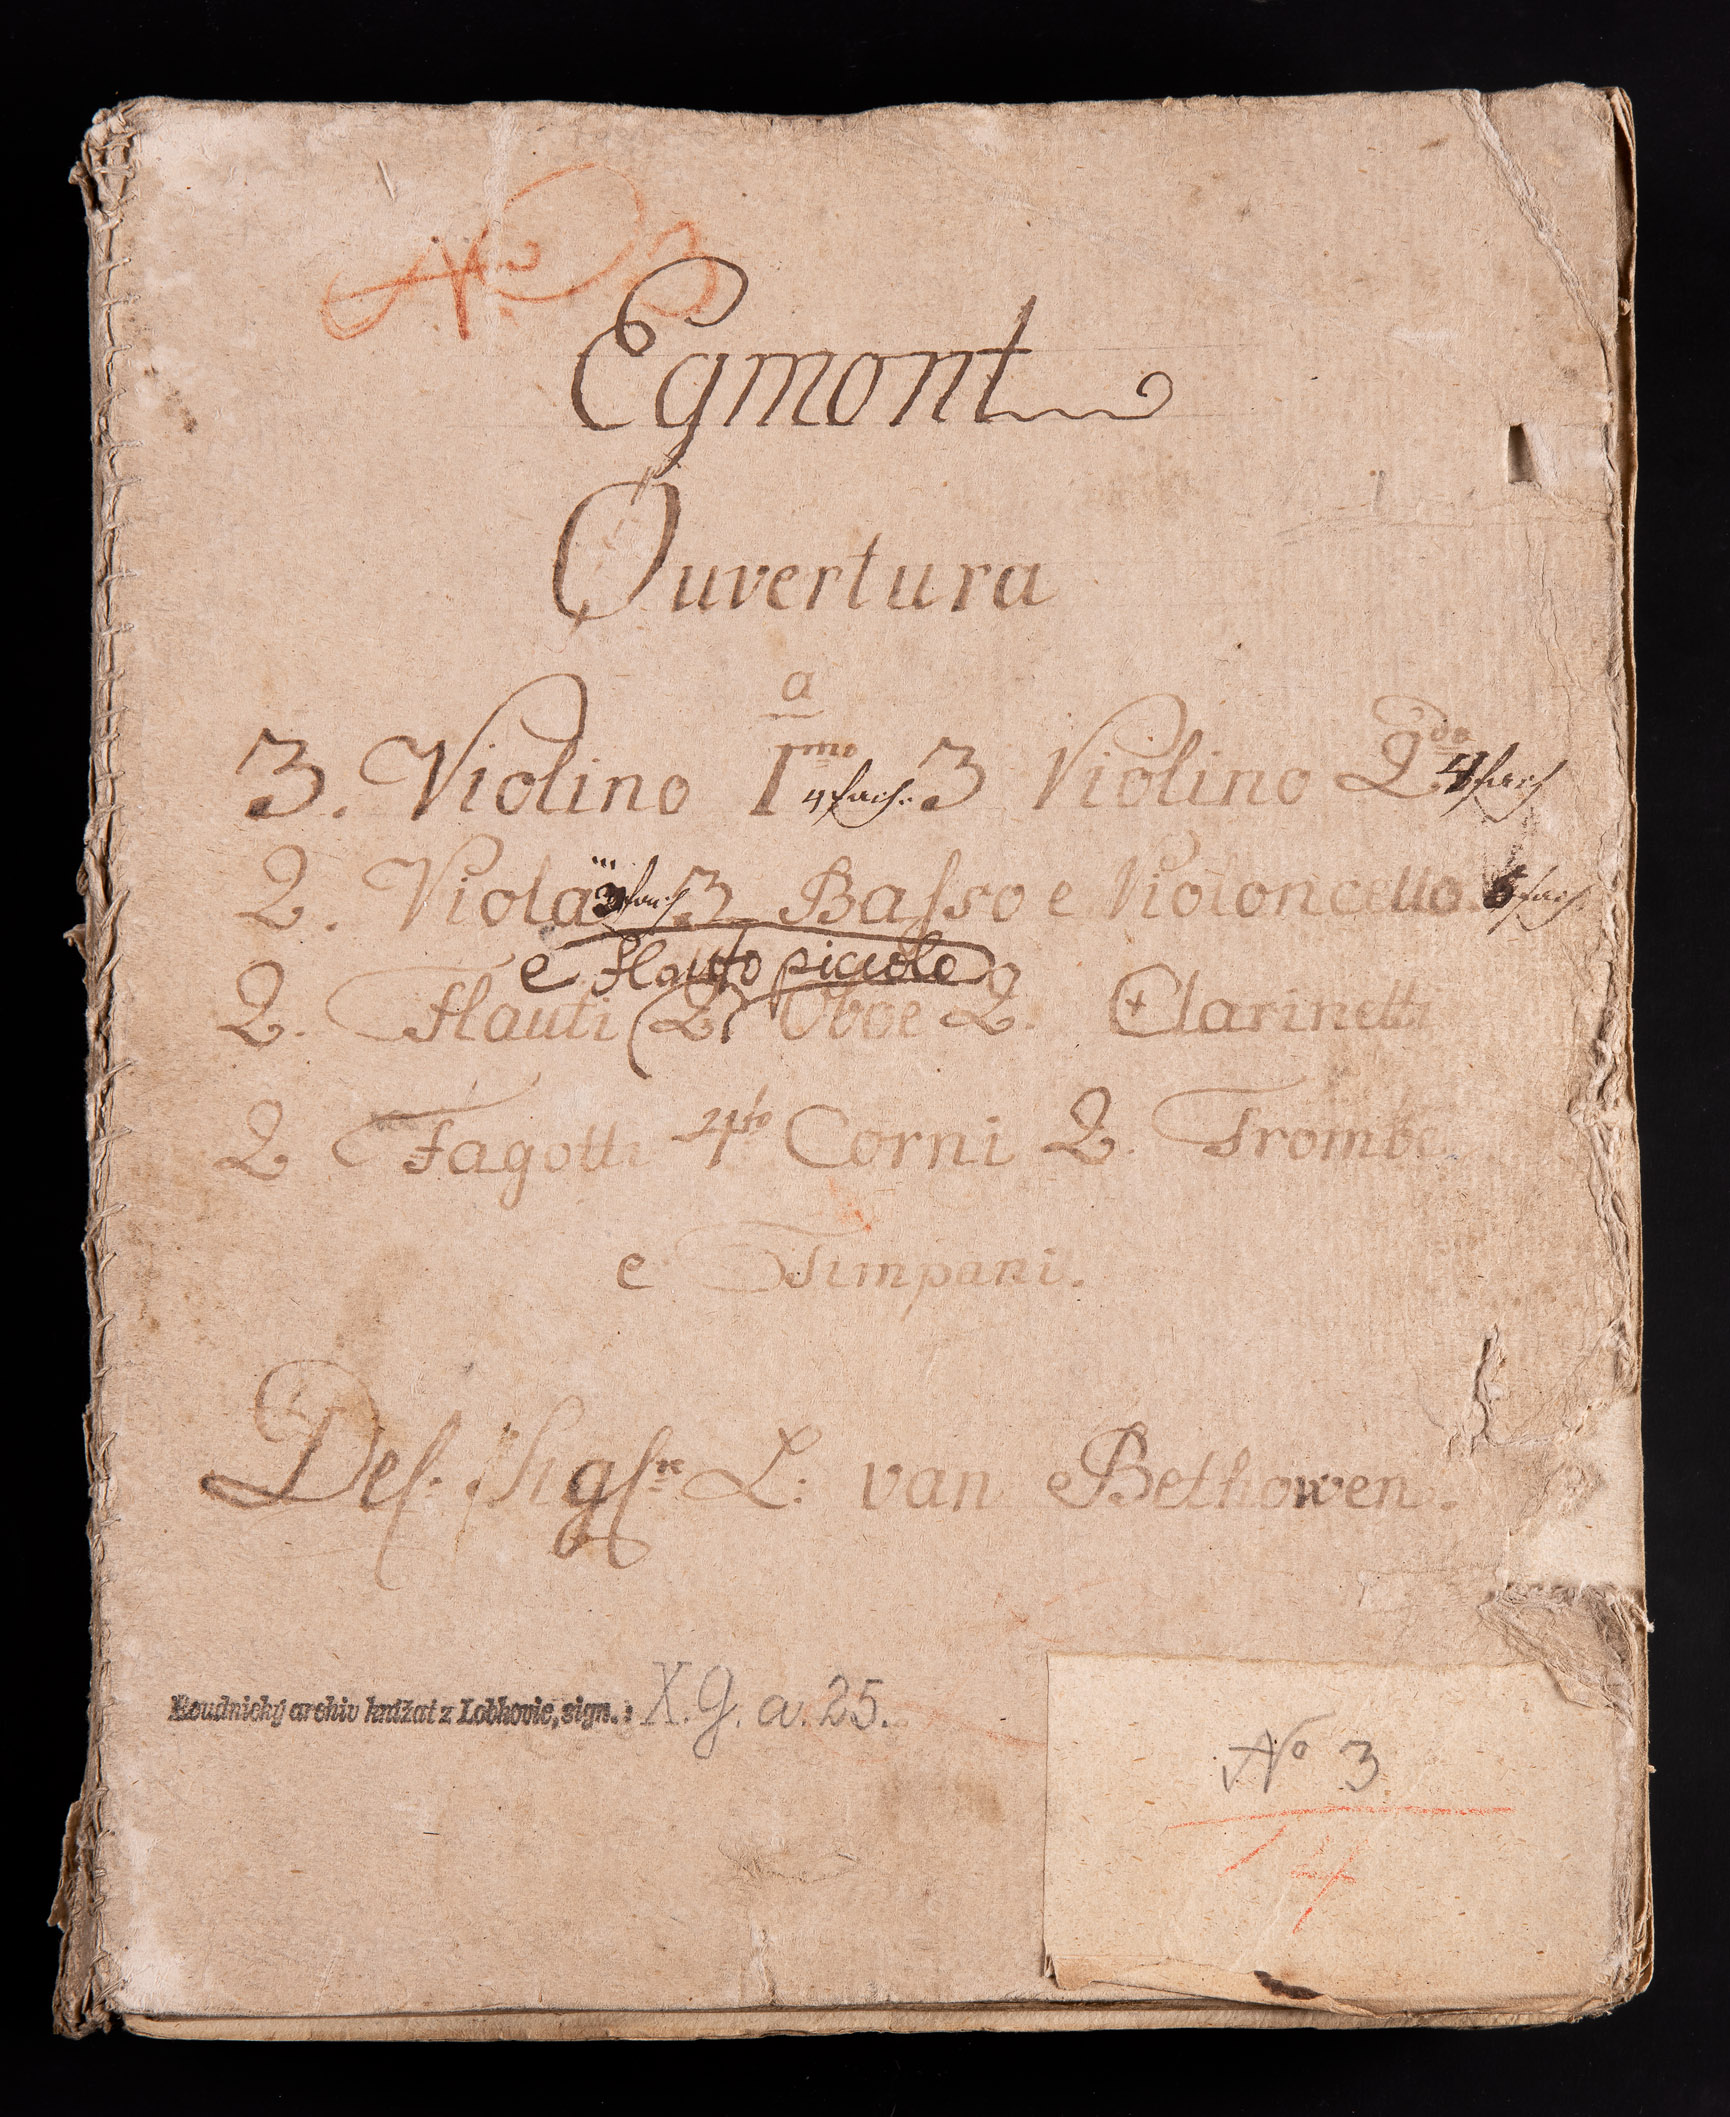 No 3
Egmont
Ouvertura
a
3. Violino Imo 4fach. 3 Violino 2do 4fach
2. Viola 3fach 3 Basso e Violoncello. 6fach.
e Flauto piccolo
2. Flauti 2 Oboe 2. Clarinetti
2 Fagotti 4to Corni 2. Trombe.
e Timpani.
Del Sigre L: van Bethowen.
Roudnický archiv knížat z Lobkovic, sign.: X. G. a. 25.
No 3
14